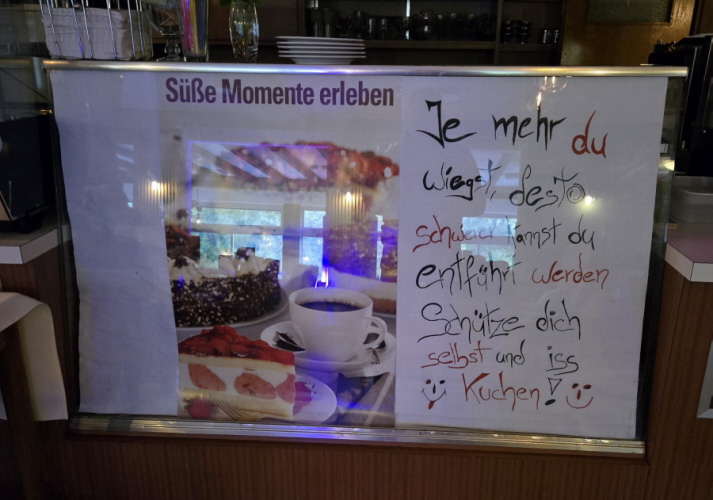 Süße Momente erleben
Je mehr du
wiegst, desto
schwerer kannst du
entführt werden
Schütze dich
selbst und iss
Kuchen!